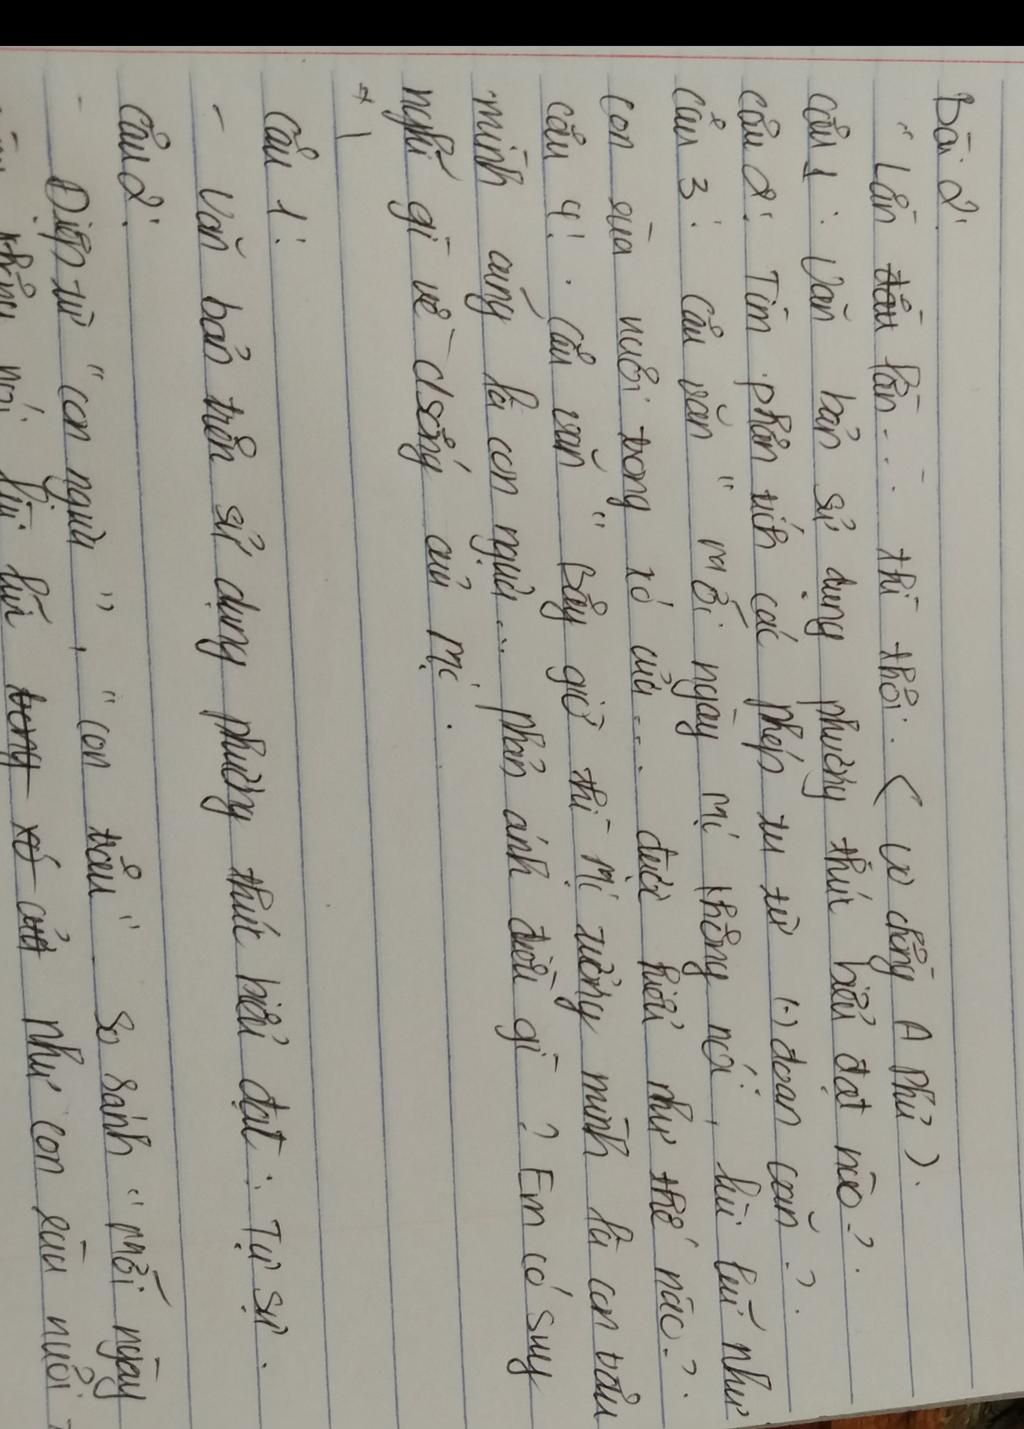 Bài 2:
"Lần đầu lần... thì thôi. < vợ chồng A Phủ).
câu 1: Văn bản sử dụng phương thức biểu đạt nào?.
câu 2: Tìm phân tích các phép tu từ (-) đoan văn?.
câu 3: câu văn "mỗi ngày Mị không nói, lùi lũi như
con rùa nuôi trong xó cửa... được hiểu như thế nào?.
câu 4: câu văn "Bây giờ thì Mị tưởng mình là con trâu
mình cũng là con ngựa... phản ánh điều gì? Em có suy
nghĩ gì về c/sống của Mị.
câu 1:
- Văn bản trên sử dụng phương thức biểu đạt: Tự sự.
câu 2:
- Điệp từ "con ngựa", "con trâu" so sánh "mỗi ngày
không nói lùi lũi trong xó cửa như con rùa nuôi